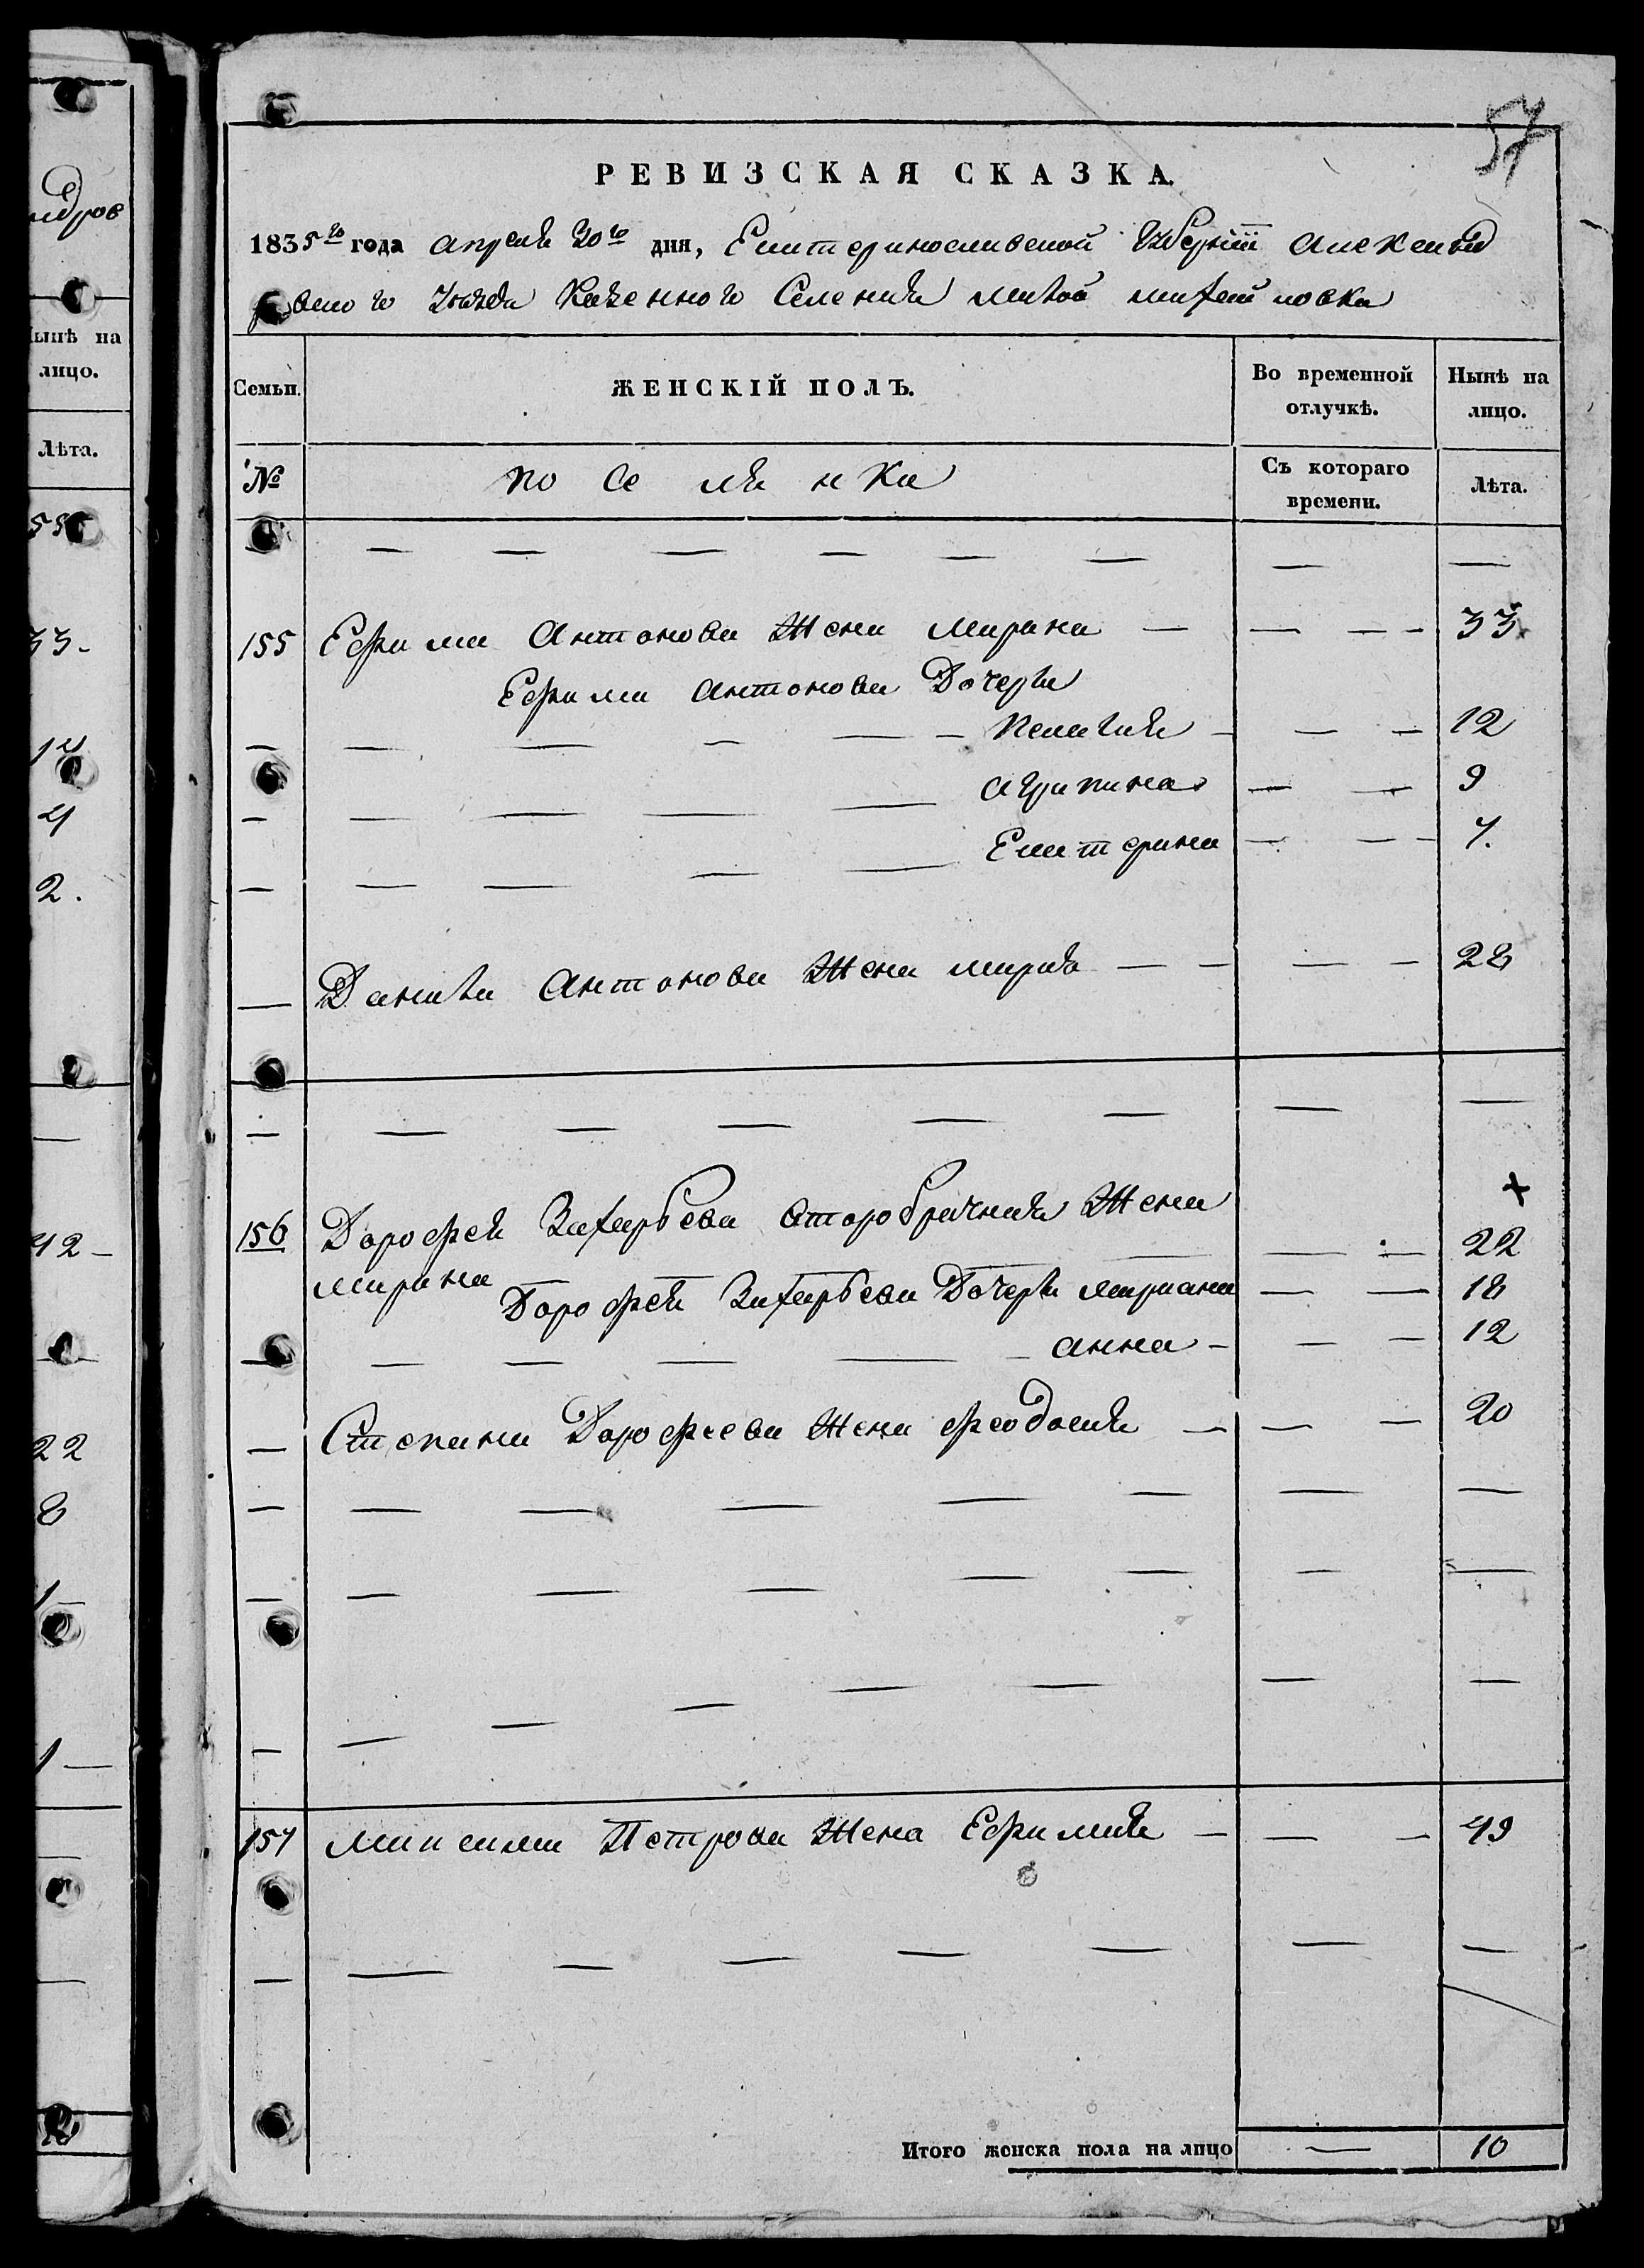 ндров
Нынѣ на
лицо.
Лѣта.
33-
4
2.
42-
22
8
1-
1-
57
РЕВИЗСКАЯ СКАЗКА.
1835го года апреля 20го дня, Екатериносливской Губерніи Александ
ровского уъзда Казенного Селенія малой михайловки
Семьи.
ЖЕНСКІЙ ПОЛЪ.
Во временной
отлучкѣ.
Нынѣ на
лицо.
№
поселянка
Съ котораго
времени.
Лѣта.
155 Ефима Антонова Жена Марина — — — — 33
Ефима Антонова Дочеря
Пелагия — — — 12
Агрипина — — 9
Екатерина — — — 7.
Данила Антонова Жена мария — — — — 28
156 Дорофея Захарьева второбрачная Жена
марина — — 22
Дорофея Захарьева Дочеря мариана — — 18
анна — — — 12
Степана Дорофеева Жена феодосия — — — 20
157 максима Петрова Жена Ефимия — — — 49
Итого женска пола на лицо — 10